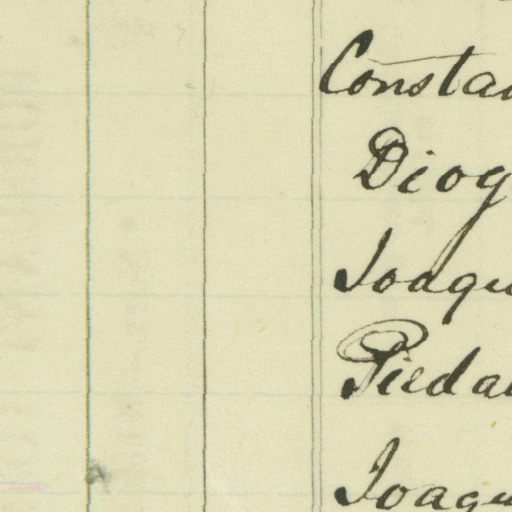 Constan
Diog
Joaqu
Piedad
Joaqu